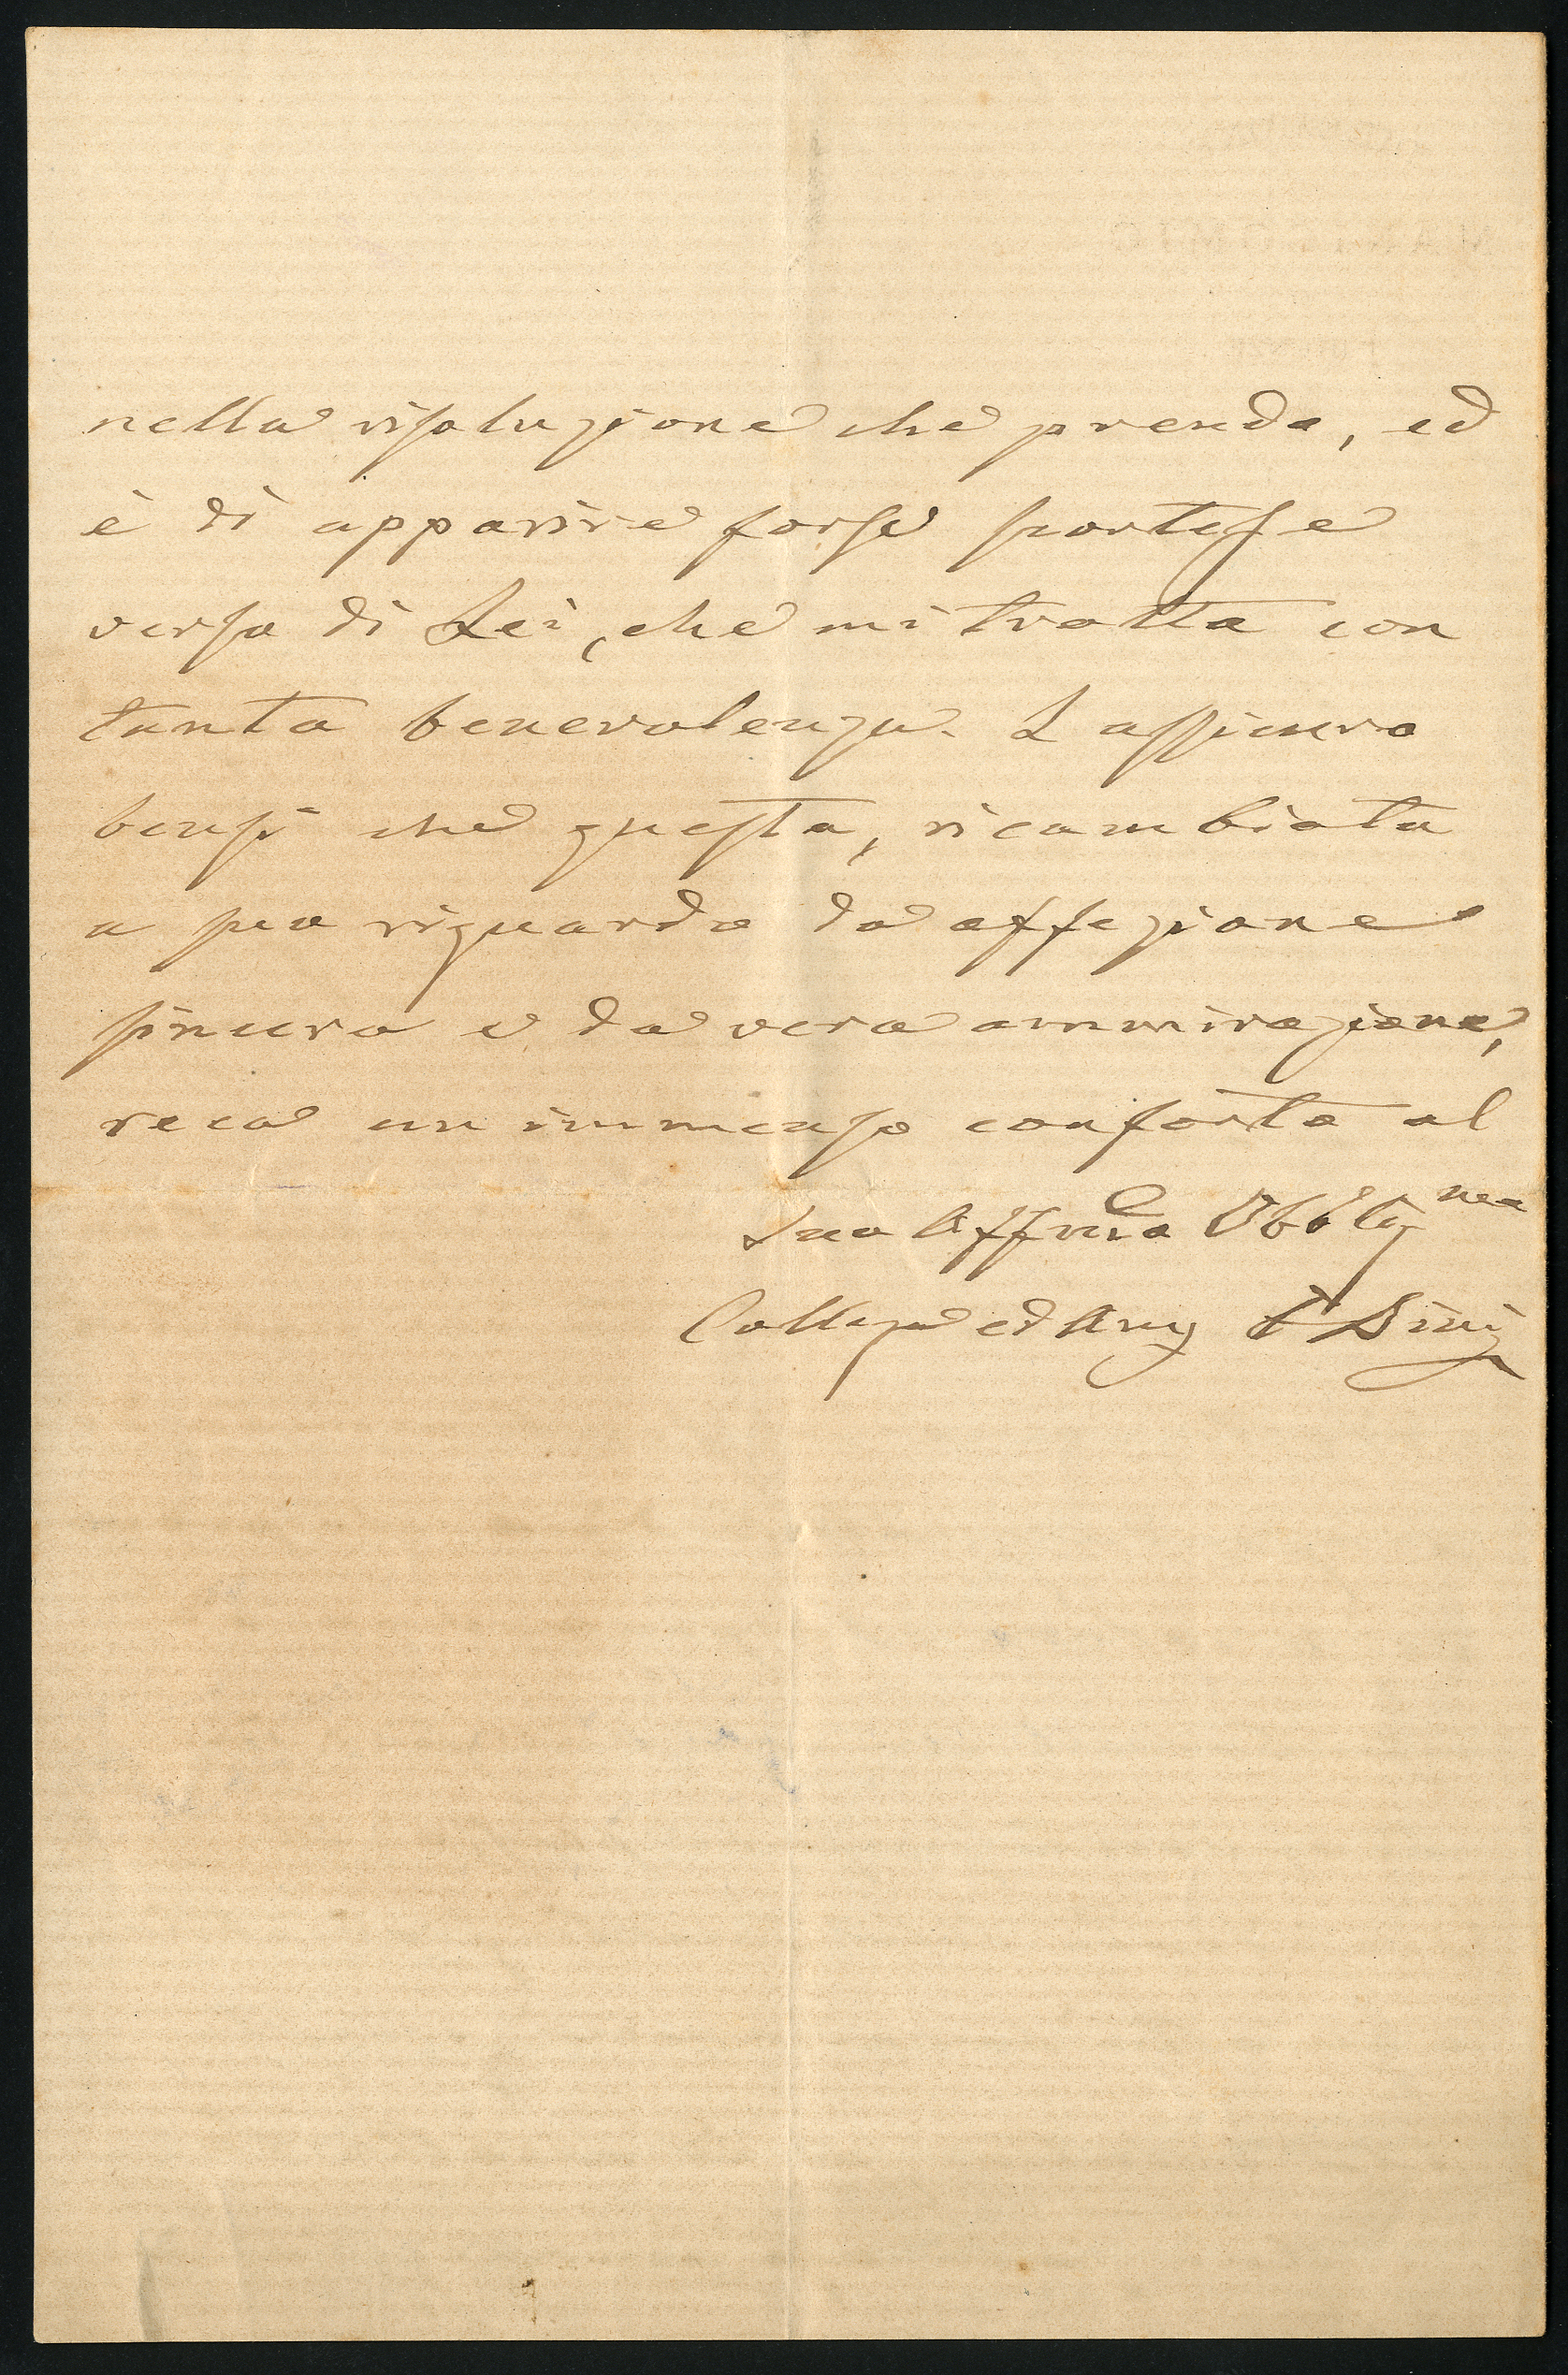 nella risoluzione che prendo, ed
è di apparire forse scortese
verso di Lei, che mi tratta con
tanta benevolenza. L assicuro
bensì che questa, ricambiata
a suo riguardo da affezione
sincera e da vera ammirazione,
reca un immenso conforto al
Suo Affmo Obblig mo
Collega ed Amy